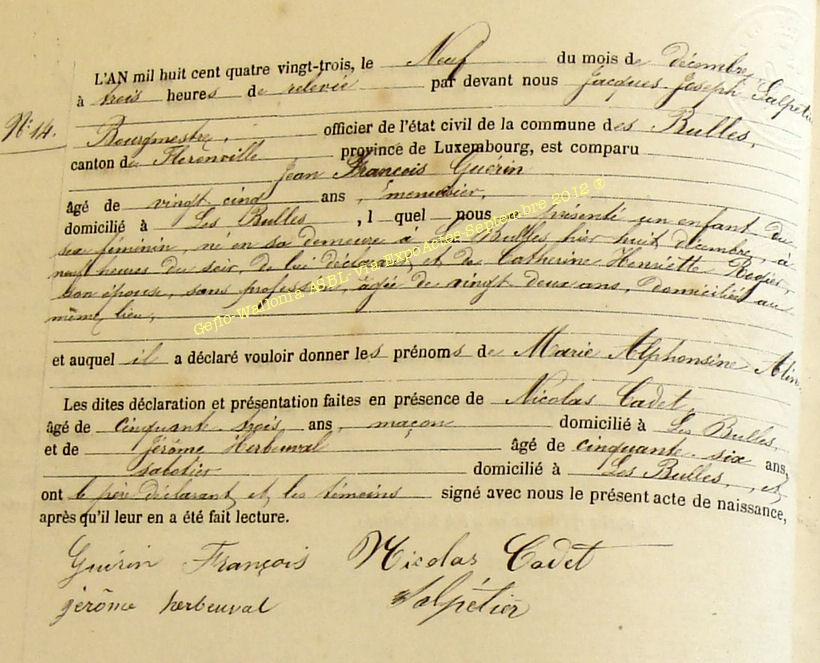 L'AN mil huit cent quatre vingt-trois, le Neuf du mois de décembre,
à trois heures de relevée par devant nous Jacques-Joseph Salpétier
N° 14.
Bourgmestre, officier de l'état civil de la commune des Bulles,
canton de Florenville province de Luxembourg, est comparu
Jean François Guérin
âgé de vingt cinq ans, menuisier,
domicilié à Les Bulles, l quel nous présenté un enfant du
sexe féminin, né en sa demeure à Bulles hier huit décembre, à
neuf heures du soir, de lui déclarant et de Catherine Henriette
son épouse, sans profession, âgée de vingt deux ans, domiciliés au
même lieu,
et auquel il a déclaré vouloir donner les prénoms de Marie Alphonsine
Les dites déclaration et présentation faites en présence de Nicolas Cadet,
âgé de cinquante trois ans, maçon domicilié à Les Bulles,
et de Jérôme Herbeuval âgé de cinquante-six ans,
sabotier domicilié à Les Bulles, et
ont le père déclarant et les témoins signé avec nous le présent acte de naissance,
après qu'il leur en a été fait lecture.
Guérin François Nicolas Cadet
jérôme herbeuval Salpétier
Geflo-Wallonia ASBL via ExpoActes Septembre 2012 ®